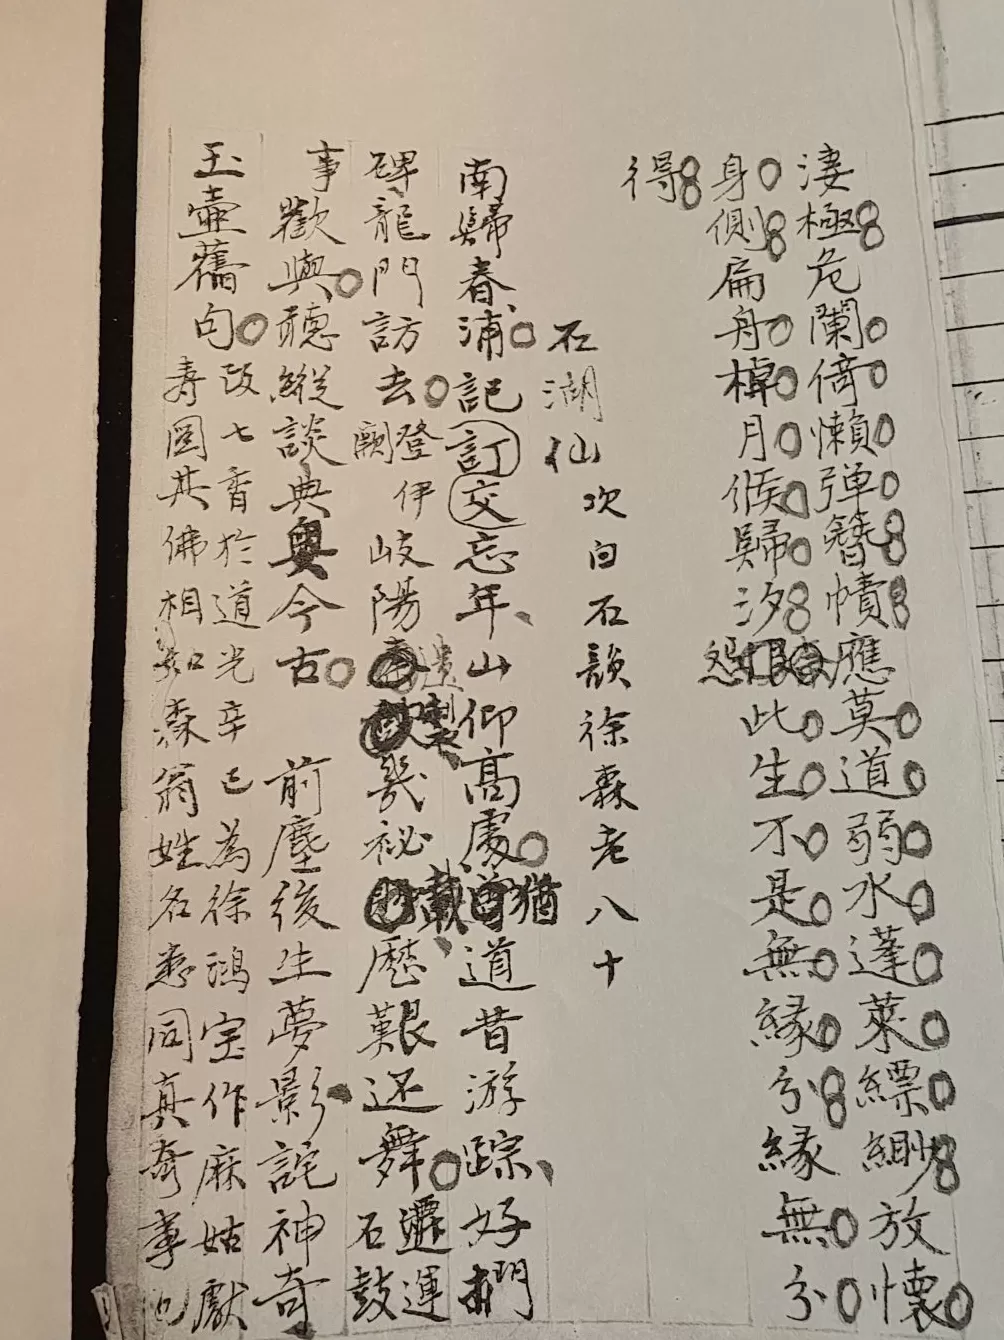 淒極危闌倚懶弹簪幘應莫道弱水蓬萊縹緲放懷
身側扁舟棹月候歸汐怨此生不是無緣分緣無分
得
石湖仙
次白石韻徐森老八十
南歸春浦記訂交忘年山仰高處猶道昔游踪好捫
碑龍門訪去登伊闕岐陽遺製幾祕載歷艱还舞遷運石鼓
事歡與聽縱談典奧今古 前塵後生夢影詫神奇
玉壺舊句改七香於道光辛巳為徐鴻宝作麻姑獻
寿图其佛相如森翁姓名悉同真奇事也